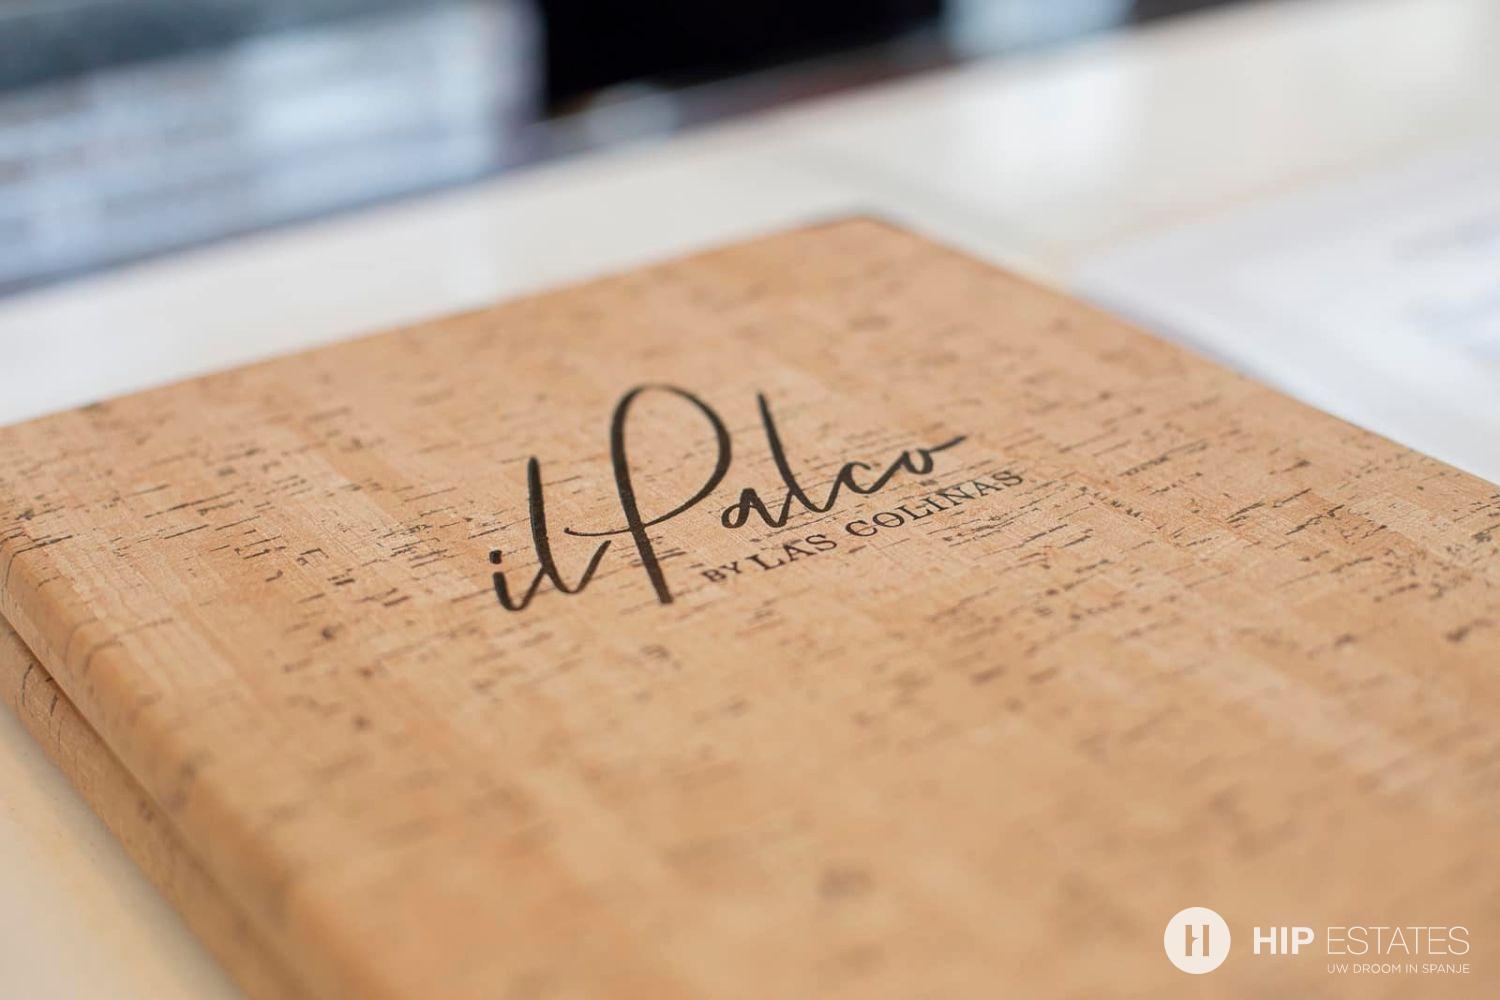 il Palco
BY LAS COLINAS
HIP ESTATES
UW DROOM IN SPANJE